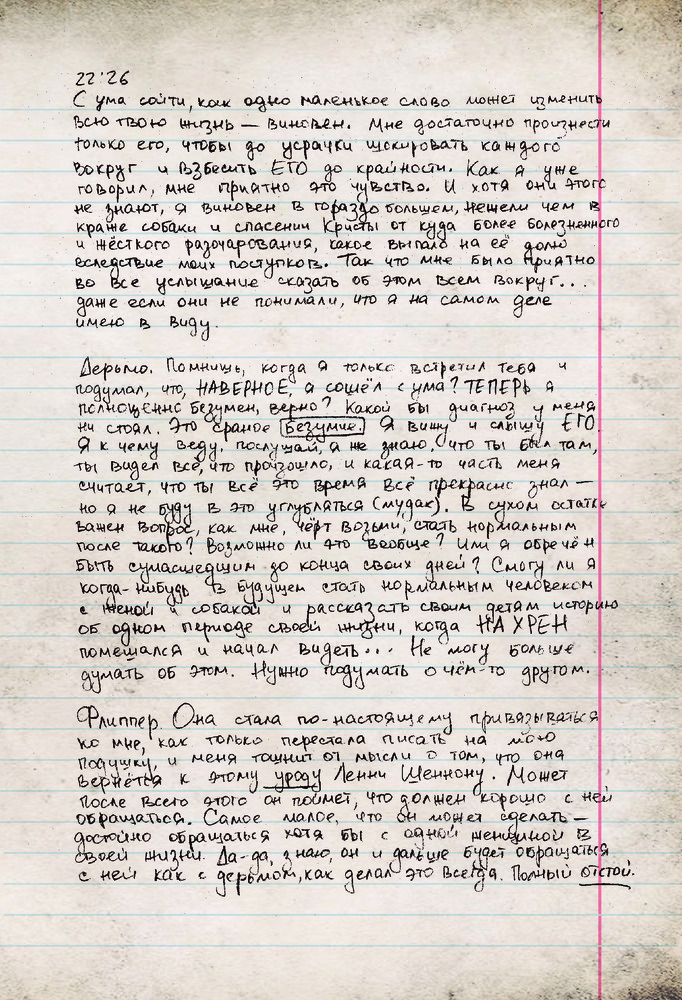 22:26
С ума сойти, как одно маленькое слово может изменить
всю твою жизнь — виновен. Мне достаточно произнести
только его, чтобы до усрачки шокировать каждого
вокруг и взбесить ЕГО до крайности. Как я уже
говорил, мне приятно это чувство. И хотя они этого
не знают, я виновен в гораздо большем, нежели чем в
краже собаки и спасении Кристы от куда более болезненного
и жёсткого разочарования, какое выпало на её долю
вследствие моих поступков. Так что мне было приятно
во все услышание сказать об этом всем вокруг...
даже если они не понимали, что я на самом деле
имею в виду.
Дерьмо. Помнишь, когда я только встретил тебя и
подумал, что, НАВЕРНОЕ, я сошёл с ума? ТЕПЕРЬ я
полноценно безумен, верно? Какой бы диагноз у меня
ни стоял. Это сраное безумие. Я вижу и слышу ЕГО.
Я к чему веду, послушай, я не знаю, что ты был там,
ты видел всё, что произошло, и какая-то часть меня
считает, что ты всё это время всё прекрасно знал —
но я не буду в это углубляться (мудак). В сухом остатке
важен вопрос, как мне, чёрт возьми, стать нормальным
после такого? Возможно ли это вообще? Или я обречён
быть сумасшедшим до конца своих дней? Смогу ли я
когда-нибудь в будущем стать нормальным человеком
с женой и собакой и рассказать своим детям историю
об одном периоде своей жизни, когда НА ХРЕН
помешался и начал видеть... Не могу больше
думать об этом. Нужно подумать о чём-то другом.
Флиппер. Она стала по-настоящему привязываться
ко мне, как только перестала писать на мою
подушку, и меня тошнит от мысли о том, что она
вернётся к этому уроду Ленни Шеннону. Может
после всего этого он поймёт, что должен хорошо с ней
обращаться. Самое малое, что он может сделать —
достойно обращаться хотя бы с одной женщиной в
своей жизни. Да-да, знаю, он и дальше будет обращаться
с ней как с дерьмом, как делал это всегда. Полный отстой.